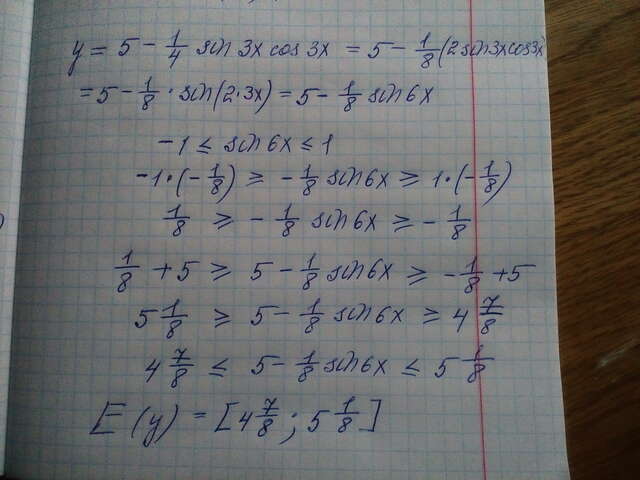 y = 5 - 1/4 sin 3x cos 3x = 5 - 1/8 (2 sin 3x cos 3x)
= 5 - 1/8 · sin(2·3x) = 5 - 1/8 sin 6x
-1 ≤ sin 6x ≤ 1
-1·(-1/8) ≥ -1/8 sin 6x ≥ 1·(-1/8)
1/8 ≥ -1/8 sin 6x ≥ -1/8
1/8 + 5 ≥ 5 - 1/8 sin 6x ≥ -1/8 + 5
5 1/8 ≥ 5 - 1/8 sin 6x ≥ 4 7/8
4 7/8 ≤ 5 - 1/8 sin 6x ≤ 5 1/8
E(y) = [4 7/8; 5 1/8]